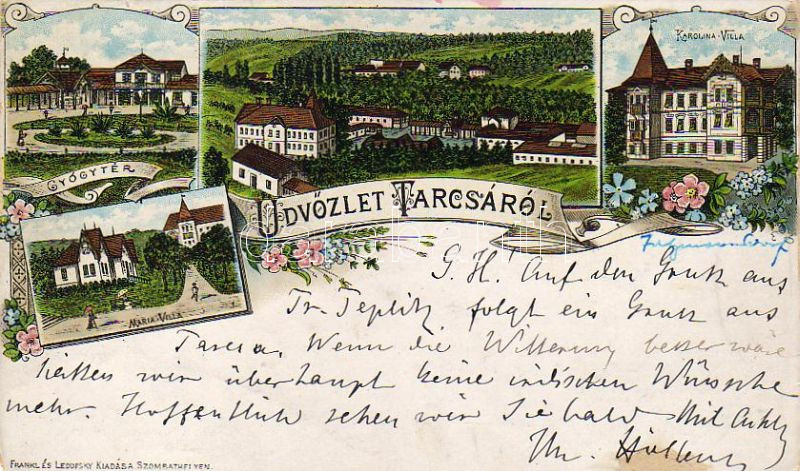 KAROLINA-VILLA
GYÓGYTÉR
ÜDVÖZLET TARCSÁRÓL
MARIA-VILLA
G. H! Auf den Gruß aus
Tr. Teplitz folgt ein Gruß aus
Tarcsa. Wenn die Witterung besser wäre
hätten wir überhaupt keine irdischen Wünsche
mehr. Hoffentlich sehen wir Sie bald Mit Achtg
Ihr
FRANKL ÉS LEDOFSKY KIADÁSA SZOMBATHELYEN.